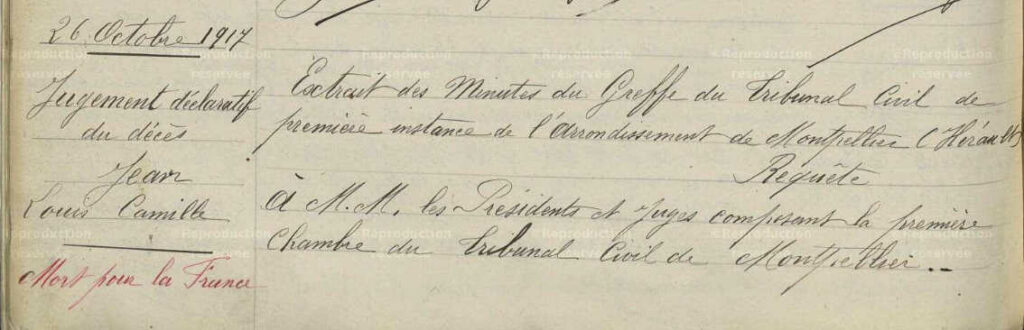 26 Octobre 1917
Jugement déclaratif
du décès
Jean
Louis Camille
Mort pour la France
Extrait des Minutes du Greffe du Tribunal Civil de
première instance de l'Arrondissement de Montpellier (Hérault)
Requête
à M.M. les Présidents et Juges composant la première
Chambre du Tribunal Civil de Montpellier..
©Reproduction
réservée